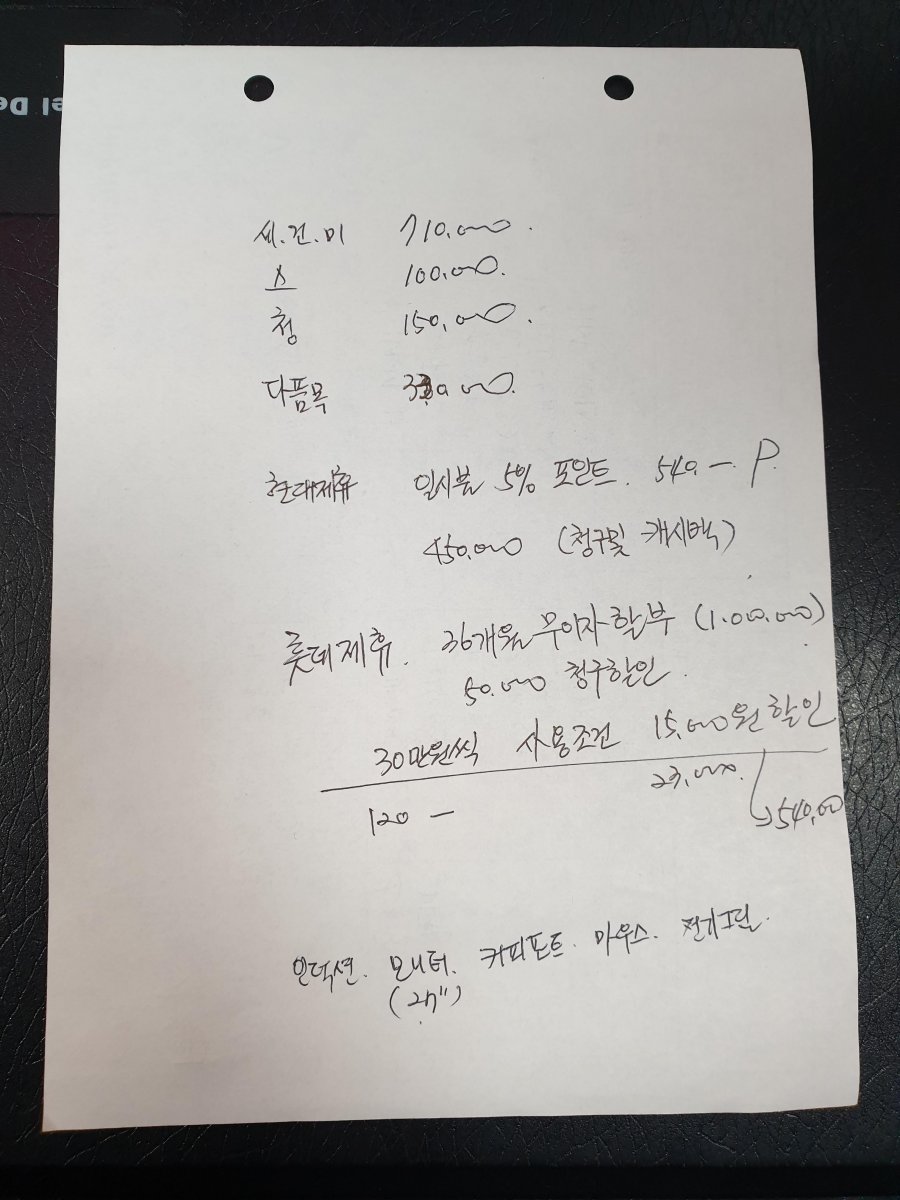 el De
세.건.미 710,000.
스 100,000.
청 150,000.
다품목
현대제휴 일시불 5% 포인트. 540. — P.
450,000 (청구및 캐시백)
롯데제휴. 36개월 무이자 할부 (1.000,000)
50.000 청구할인.
30만원씩 사용조건 15,000원 할인
23,000.
120 — 540,00
인덕션. 모니터. 커피포트. 마우스. 전기그릴.
(27")